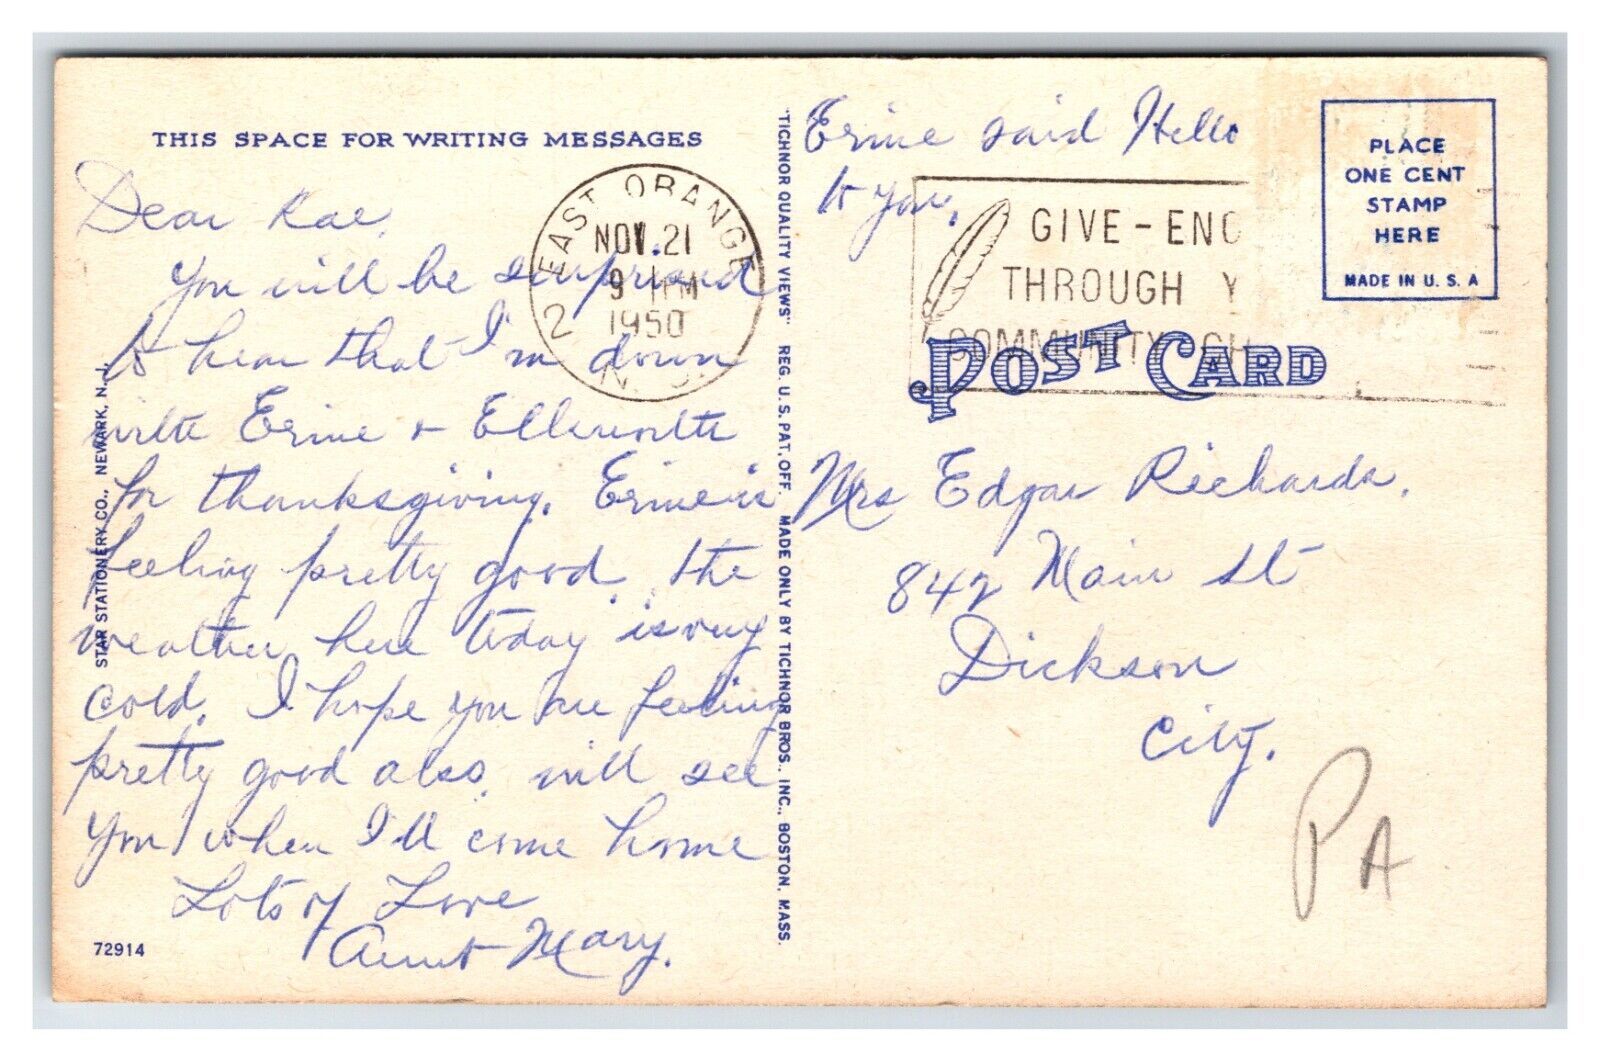 THIS SPACE FOR WRITING MESSAGES
Dear Rae,
You will be surprised
to hear that I'm down
with Ernie + Ellsworth
for thanksgiving. Ernie is
feeling pretty good, the
weather here today is very
cold. I hope you are feeling
pretty good also, will see
you when I'll come home
Lots of Love
Aunt Mary.
72914
STAR STATIONERY CO., NEWARK, N. J.
2 EAST ORANGE
NOV. 21
9 PM
1950
N. J.
"TICHNOR QUALITY VIEWS" REG. U. S. PAT. OFF. MADE ONLY BY TICHNOR BROS., INC., BOSTON, MASS.
Ernie said Hello
to you.
GIVE - ENC
THROUGH Y
COMMUNITY CH
PLACE
ONE CENT
STAMP
HERE
MADE IN U. S. A
POST CARD
Mrs Edgar Richards,
842 Main St
Dickson
City.
PA